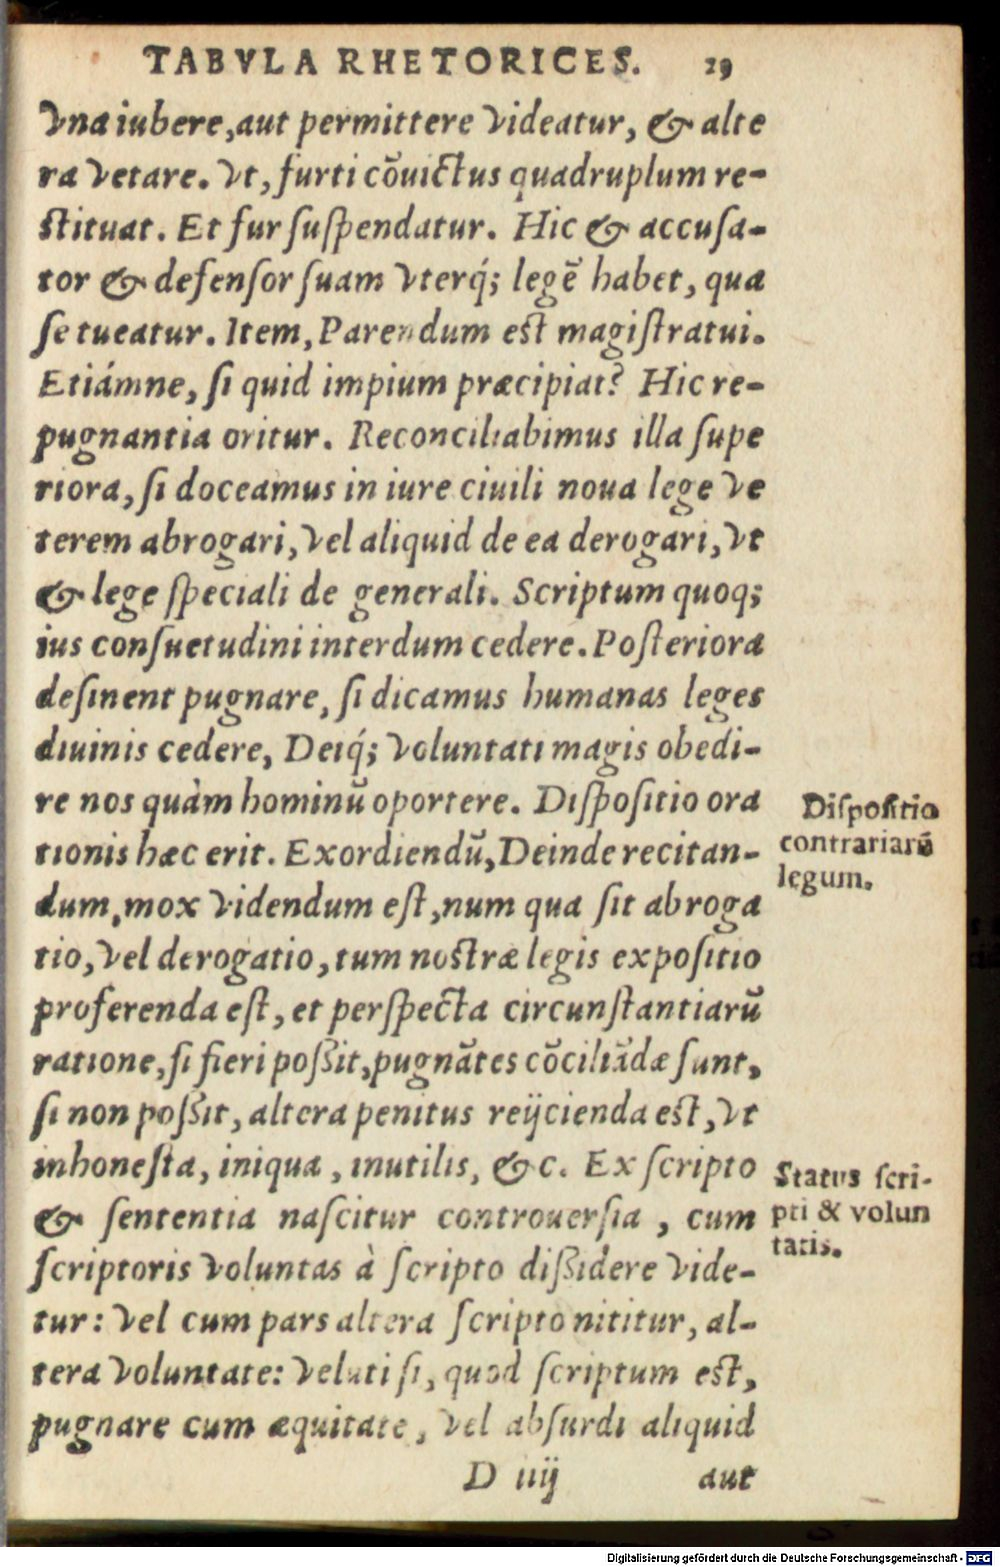 TABVLA RHETORICES. 29
vna iubere, aut permittere videatur, & alte
ra vetare. Vt, furti cõuictus quadruplum re-
ſtituat. Et fur ſuſpendatur. Hic & accuſa-
tor & defenſor ſuam vterq́; legẽ habet, qua
ſe tueatur. Item, Parendum eſt magiſtratui.
Etiámne, ſi quid impium præcipiat? Hic re-
pugnantia oritur. Reconciliabimus illa ſupe
riora, ſi doceamus in iure ciuili noua lege ve
terem abrogari, vel aliquid de ea derogari, vt
& lege ſpeciali de generali. Scriptum quoq;
ius conſuetudini interdum cedere. Poſteriora
deſinent pugnare, ſi dicamus humanas leges
diuinis cedere, Deiq́; voluntati magis obedi-
re nos quàm hominũ oportere. Diſpoſitio ora
tionis hæc erit. Exordiendũ, Deinde recitan-
dum, mox videndum eſt, num qua ſit abroga
tio, vel derogatio, tum noſtræ legis expoſitio
proferenda eſt, et perſpecta circunſtantiarũ
ratione, ſi fieri poßit, pugnãtes cõciliãdæ ſunt,
ſi non poßit, altera penitus reijcienda eſt, vt
inhoneſta, iniqua, inutilis, &c. Ex ſcripto
& ſententia naſcitur controuerſia, cum
ſcriptoris voluntas à ſcripto dißidere vide-
tur: vel cum pars altera ſcripto nititur, al-
tera voluntate: veluti ſi, quod ſcriptum eſt,
pugnare cum æquitate, vel abſurdi aliquid
D iiij aut
Diſpoſitio
contrariarũ
legum.
Status ſcri-
pti & volun
tatis.
Digitalisierung gefördert durch die Deutsche Forschungsgemeinschaft - DFG